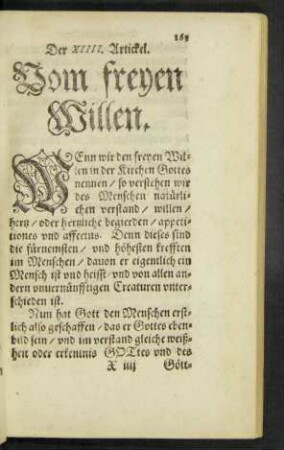 163
Der XIIII. Artickel.
Vom freyen
Willen.
WEnn wir den freyen Wil-
len in der Kirchen Gottes
nennen / so verstehen wir
des Menschen natürli-
chen verstand / willen /
hertz / oder hertzliche begierden / appeti-
tiones vnd affectus. Denn dieses sind
die fürnemsten / vnd höhesten krefften
im Menschen / dauon er eigentlich ein
Mensch ist vnd heisst / vnd von allen an-
dern vnuernünfftigen Creaturen vnter-
schieden ist.
Nun hat Gott den Menschen erst-
lich also geschaffen / das er Gottes eben-
bild sein / vnd im verstand gleiche weiß-
heit oder erkentnis GOTtes vnd des
X iiij Gött-